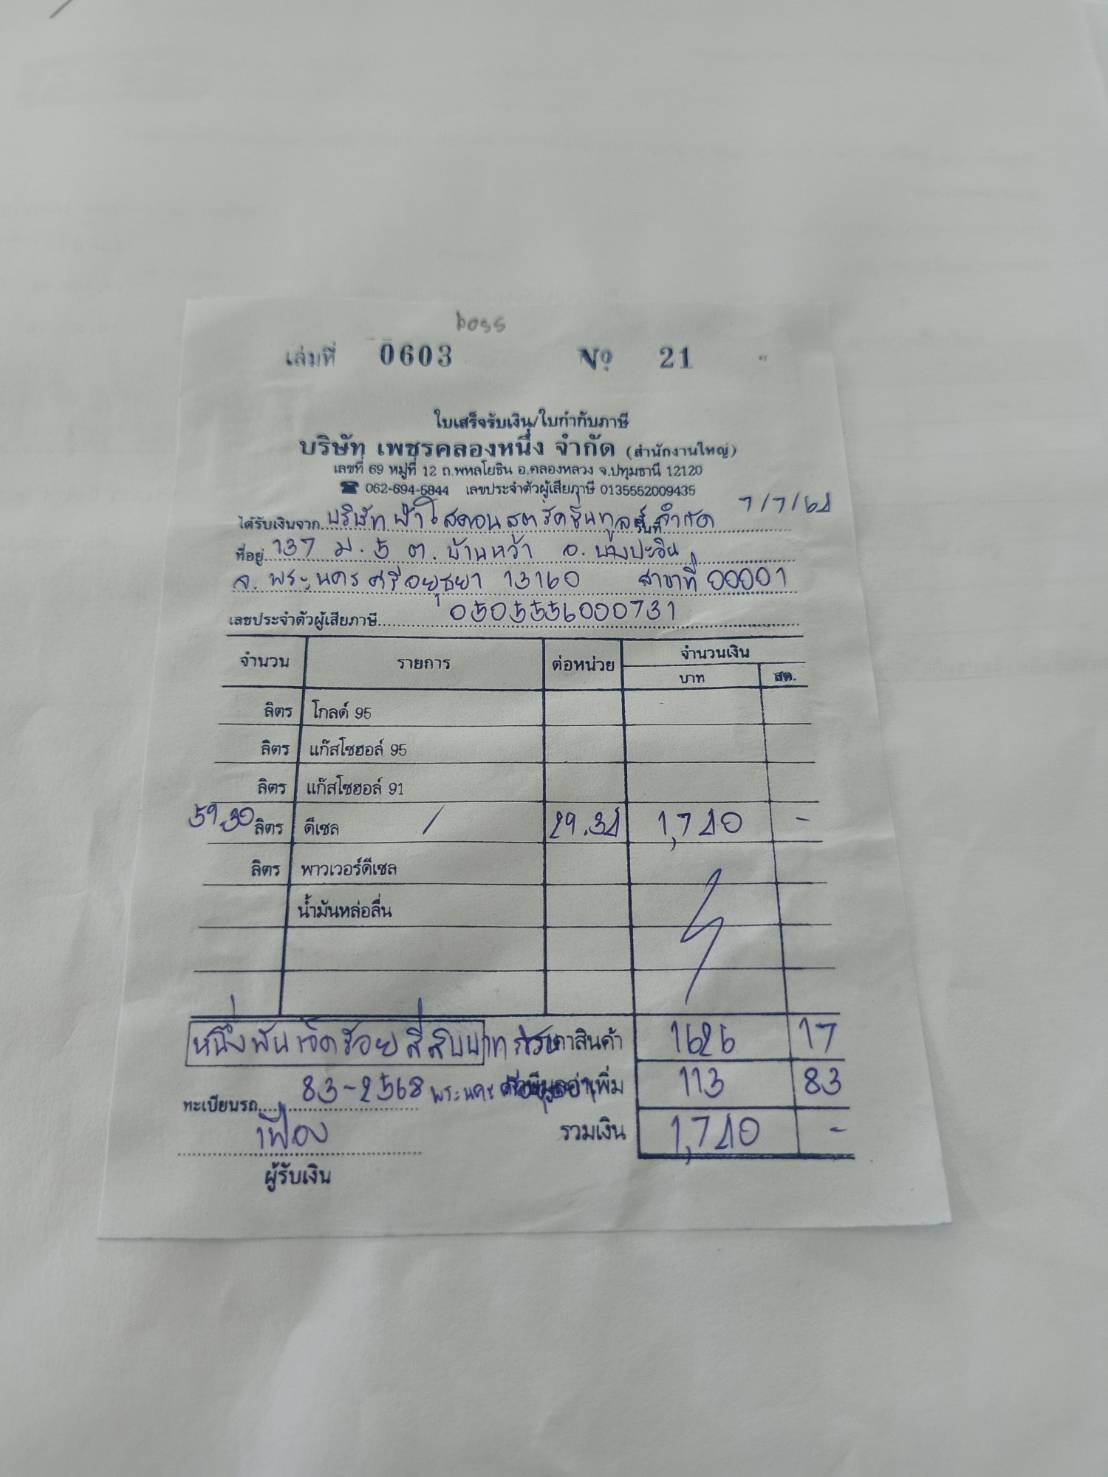 boss
เล่มที่ 0603 Nº 21
ใบเสร็จรับเงิน/ใบกำกับภาษี
บริษัท เพชรคลองหนึ่ง จำกัด (สำนักงานใหญ่)
เลขที่ 69 หมู่ที่ 12 ถ.พหลโยธิน อ.คลองหลวง จ.ปทุมธานี 12120
☎ 062-694-5944 เลขประจำตัวผู้เสียภาษี 0135552009435
ได้รับเงินจาก บริษัท ฟ้าใสคอนสตรัคชั่นทูลส์ จำกัด วันที่ 7/7/64
ที่อยู่ 137 ม.5 ต.บ้านหว้า อ.บางปะอิน
จ.พระนครศรีอยุธยา 13160 สาขาที่ 00001
เลขประจำตัวผู้เสียภาษี 0505556000731
จำนวน รายการ ต่อหน่วย จำนวนเงิน
บาท สต.
ลิตร โกลด์ 95
ลิตร แก๊สโซฮอล์ 95
ลิตร แก๊สโซฮอล์ 91
59.30 ลิตร ดีเซล / 29.34 1,740 -
ลิตร พาวเวอร์ดีเซล
น้ำมันหล่อลื่น
หนึ่งพันเจ็ดร้อยสี่สิบบาท ราคาสินค้า 1626 17
ภาษีมูลค่าเพิ่ม 113 83
ทะเบียนรถ 83-2568 พระนคร
รวมเงิน 1,740 -
เฟื่อง
ผู้รับเงิน